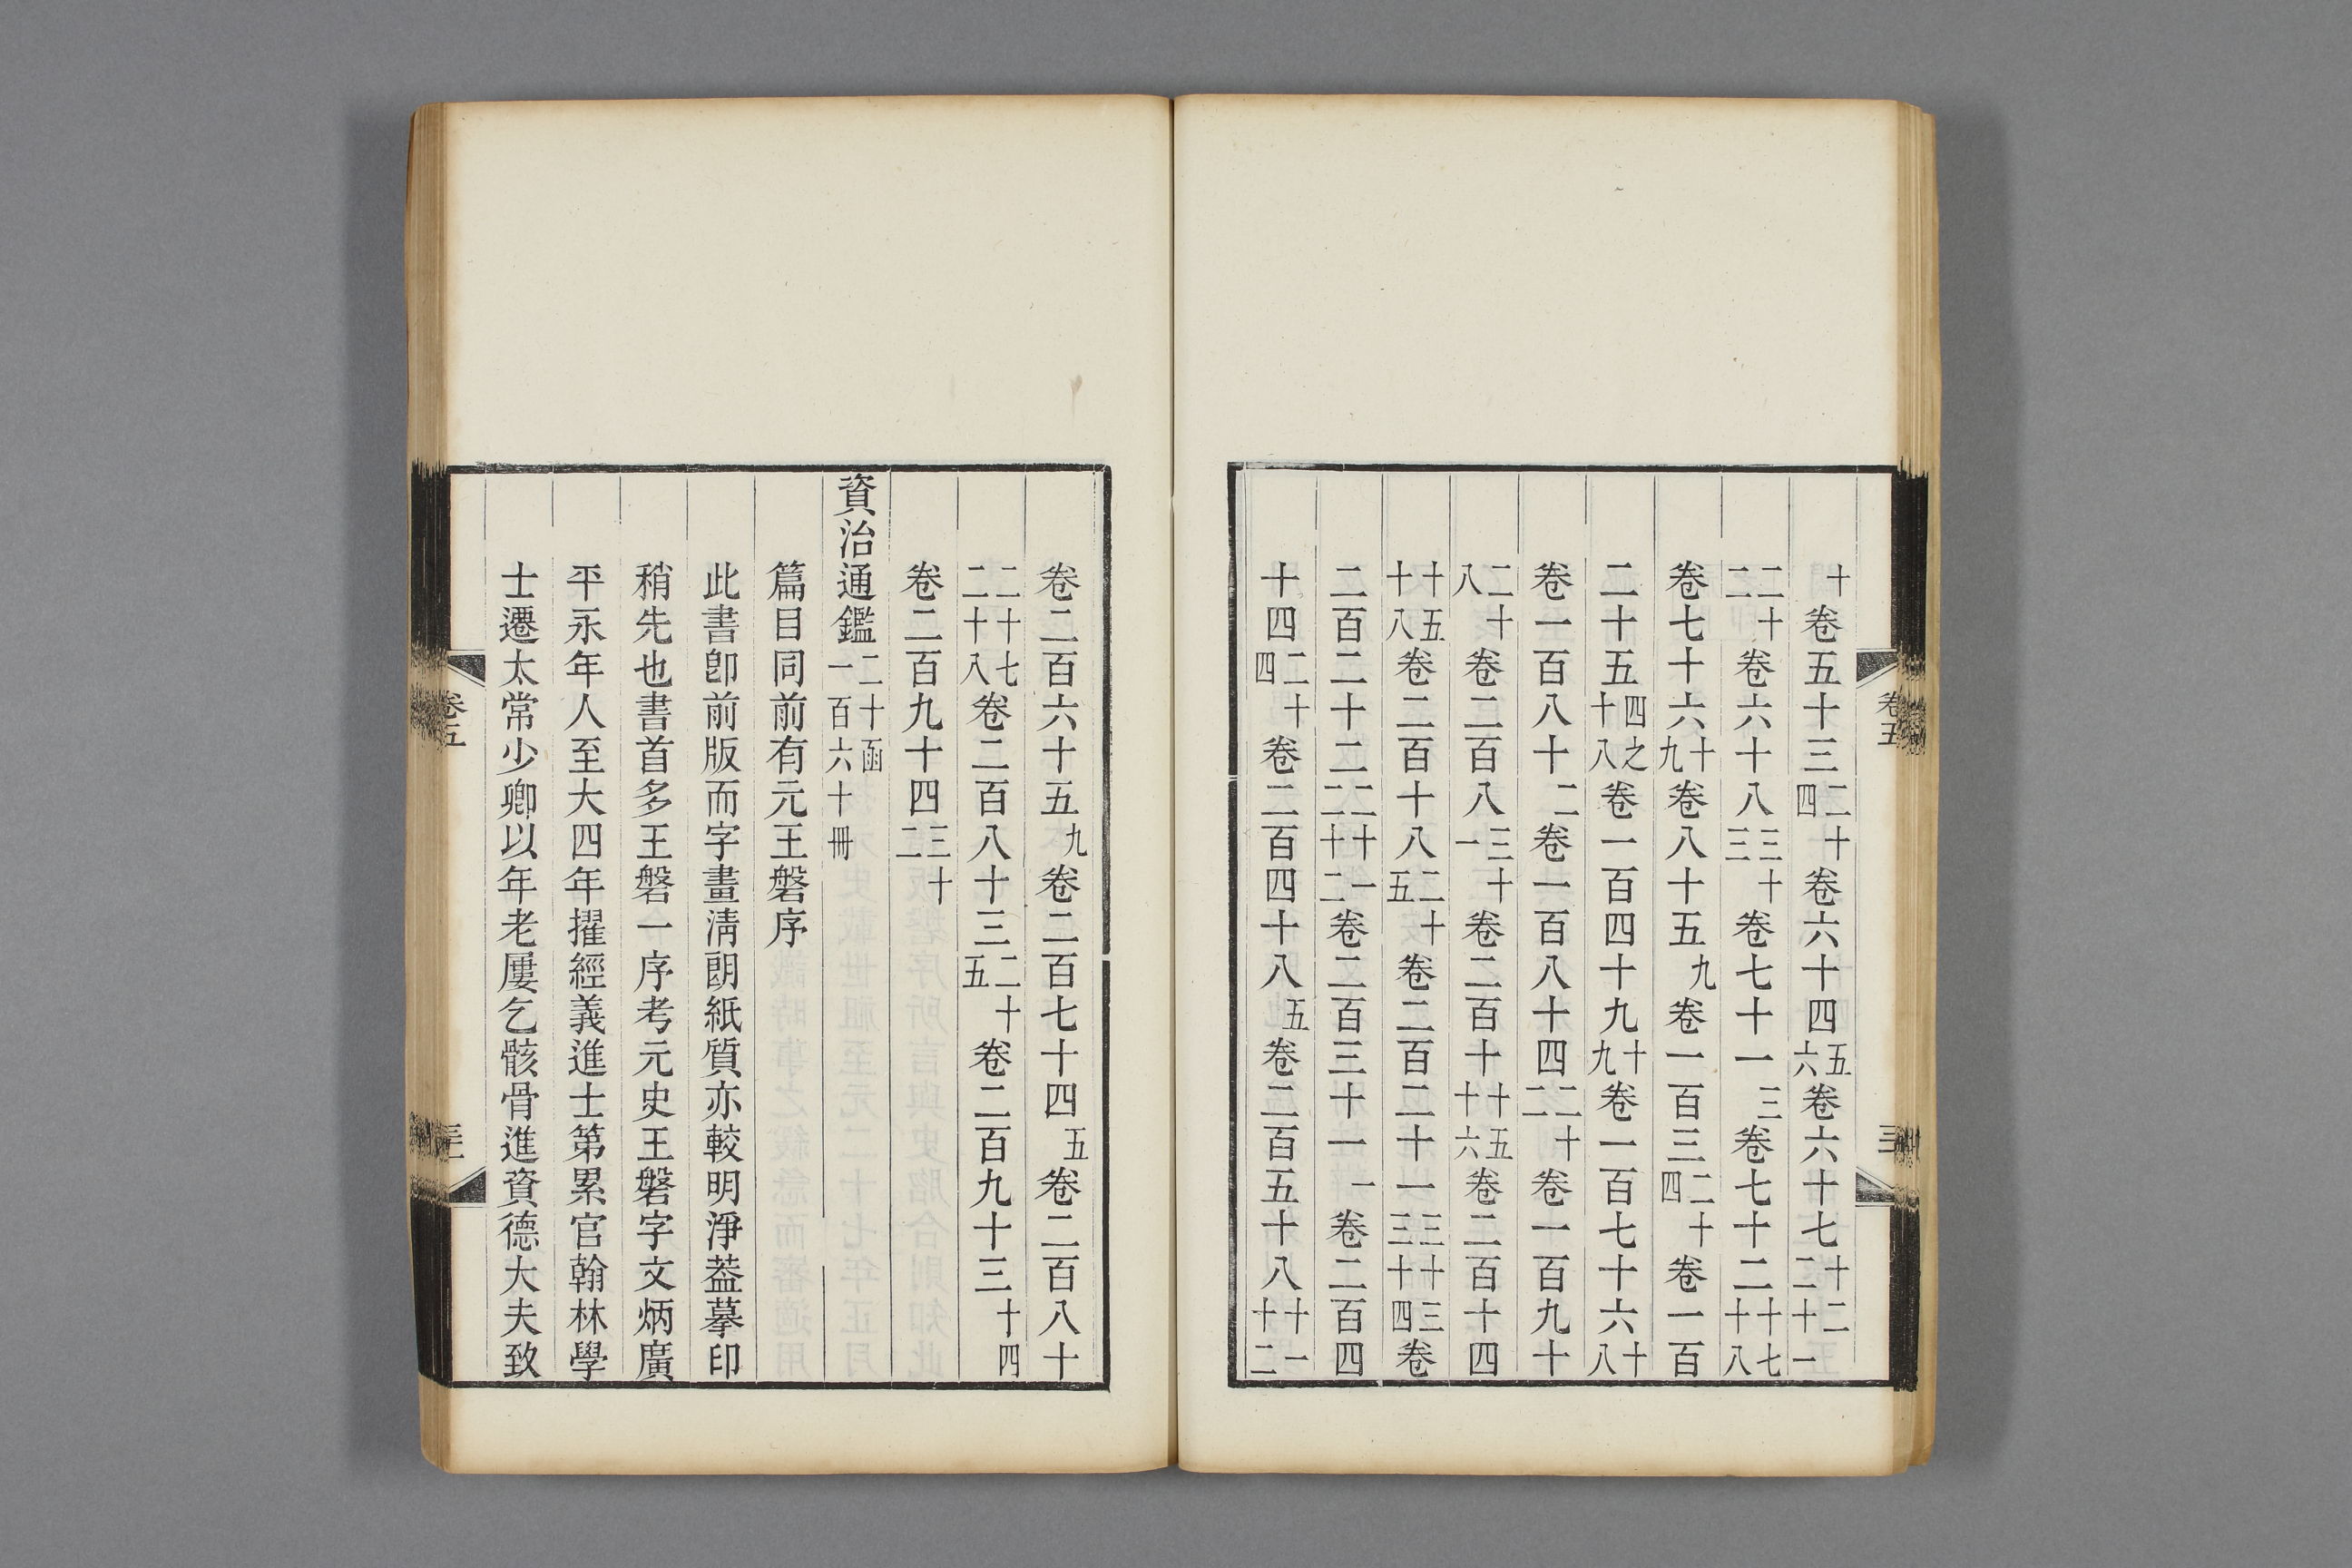 卷五
十卷五十三二十四卷六十四五六卷六十七十二二十一
二十二卷六十八三十三卷七十一三卷七十二十七十八
卷七十六十九卷八十五九卷一百三二十四卷一百
二十五四之十八卷一百四十九十九卷一百七十六十八
卷一百八十二卷一百八十四二十二卷一百九十
二十八卷二百八三十一卷二百十十五十六卷二百十四
十五十八卷二百十八二十五卷二百二十一三十三三十四卷
二百二十二二十一二十二卷二百三十一一卷二百四
十四二十四卷二百四十八五卷二百五十八十一十二
卷二百六十五九卷二百七十四五卷二百八十
二十七二十八卷二百八十三二十五卷二百九十三十四
卷二百九十四三十二
資治通鑑二十函一百六十冊
篇目同前有元王磐序
此書卽前版而字畫淸朗紙質亦較明淨蓋摹印
稍先也書首多王磐一序考元史王磐字文炳廣
平永年人至大四年擢經義進士第累官翰林學
士遷太常少卿以年老屢乞骸骨進資德大夫致
卷五